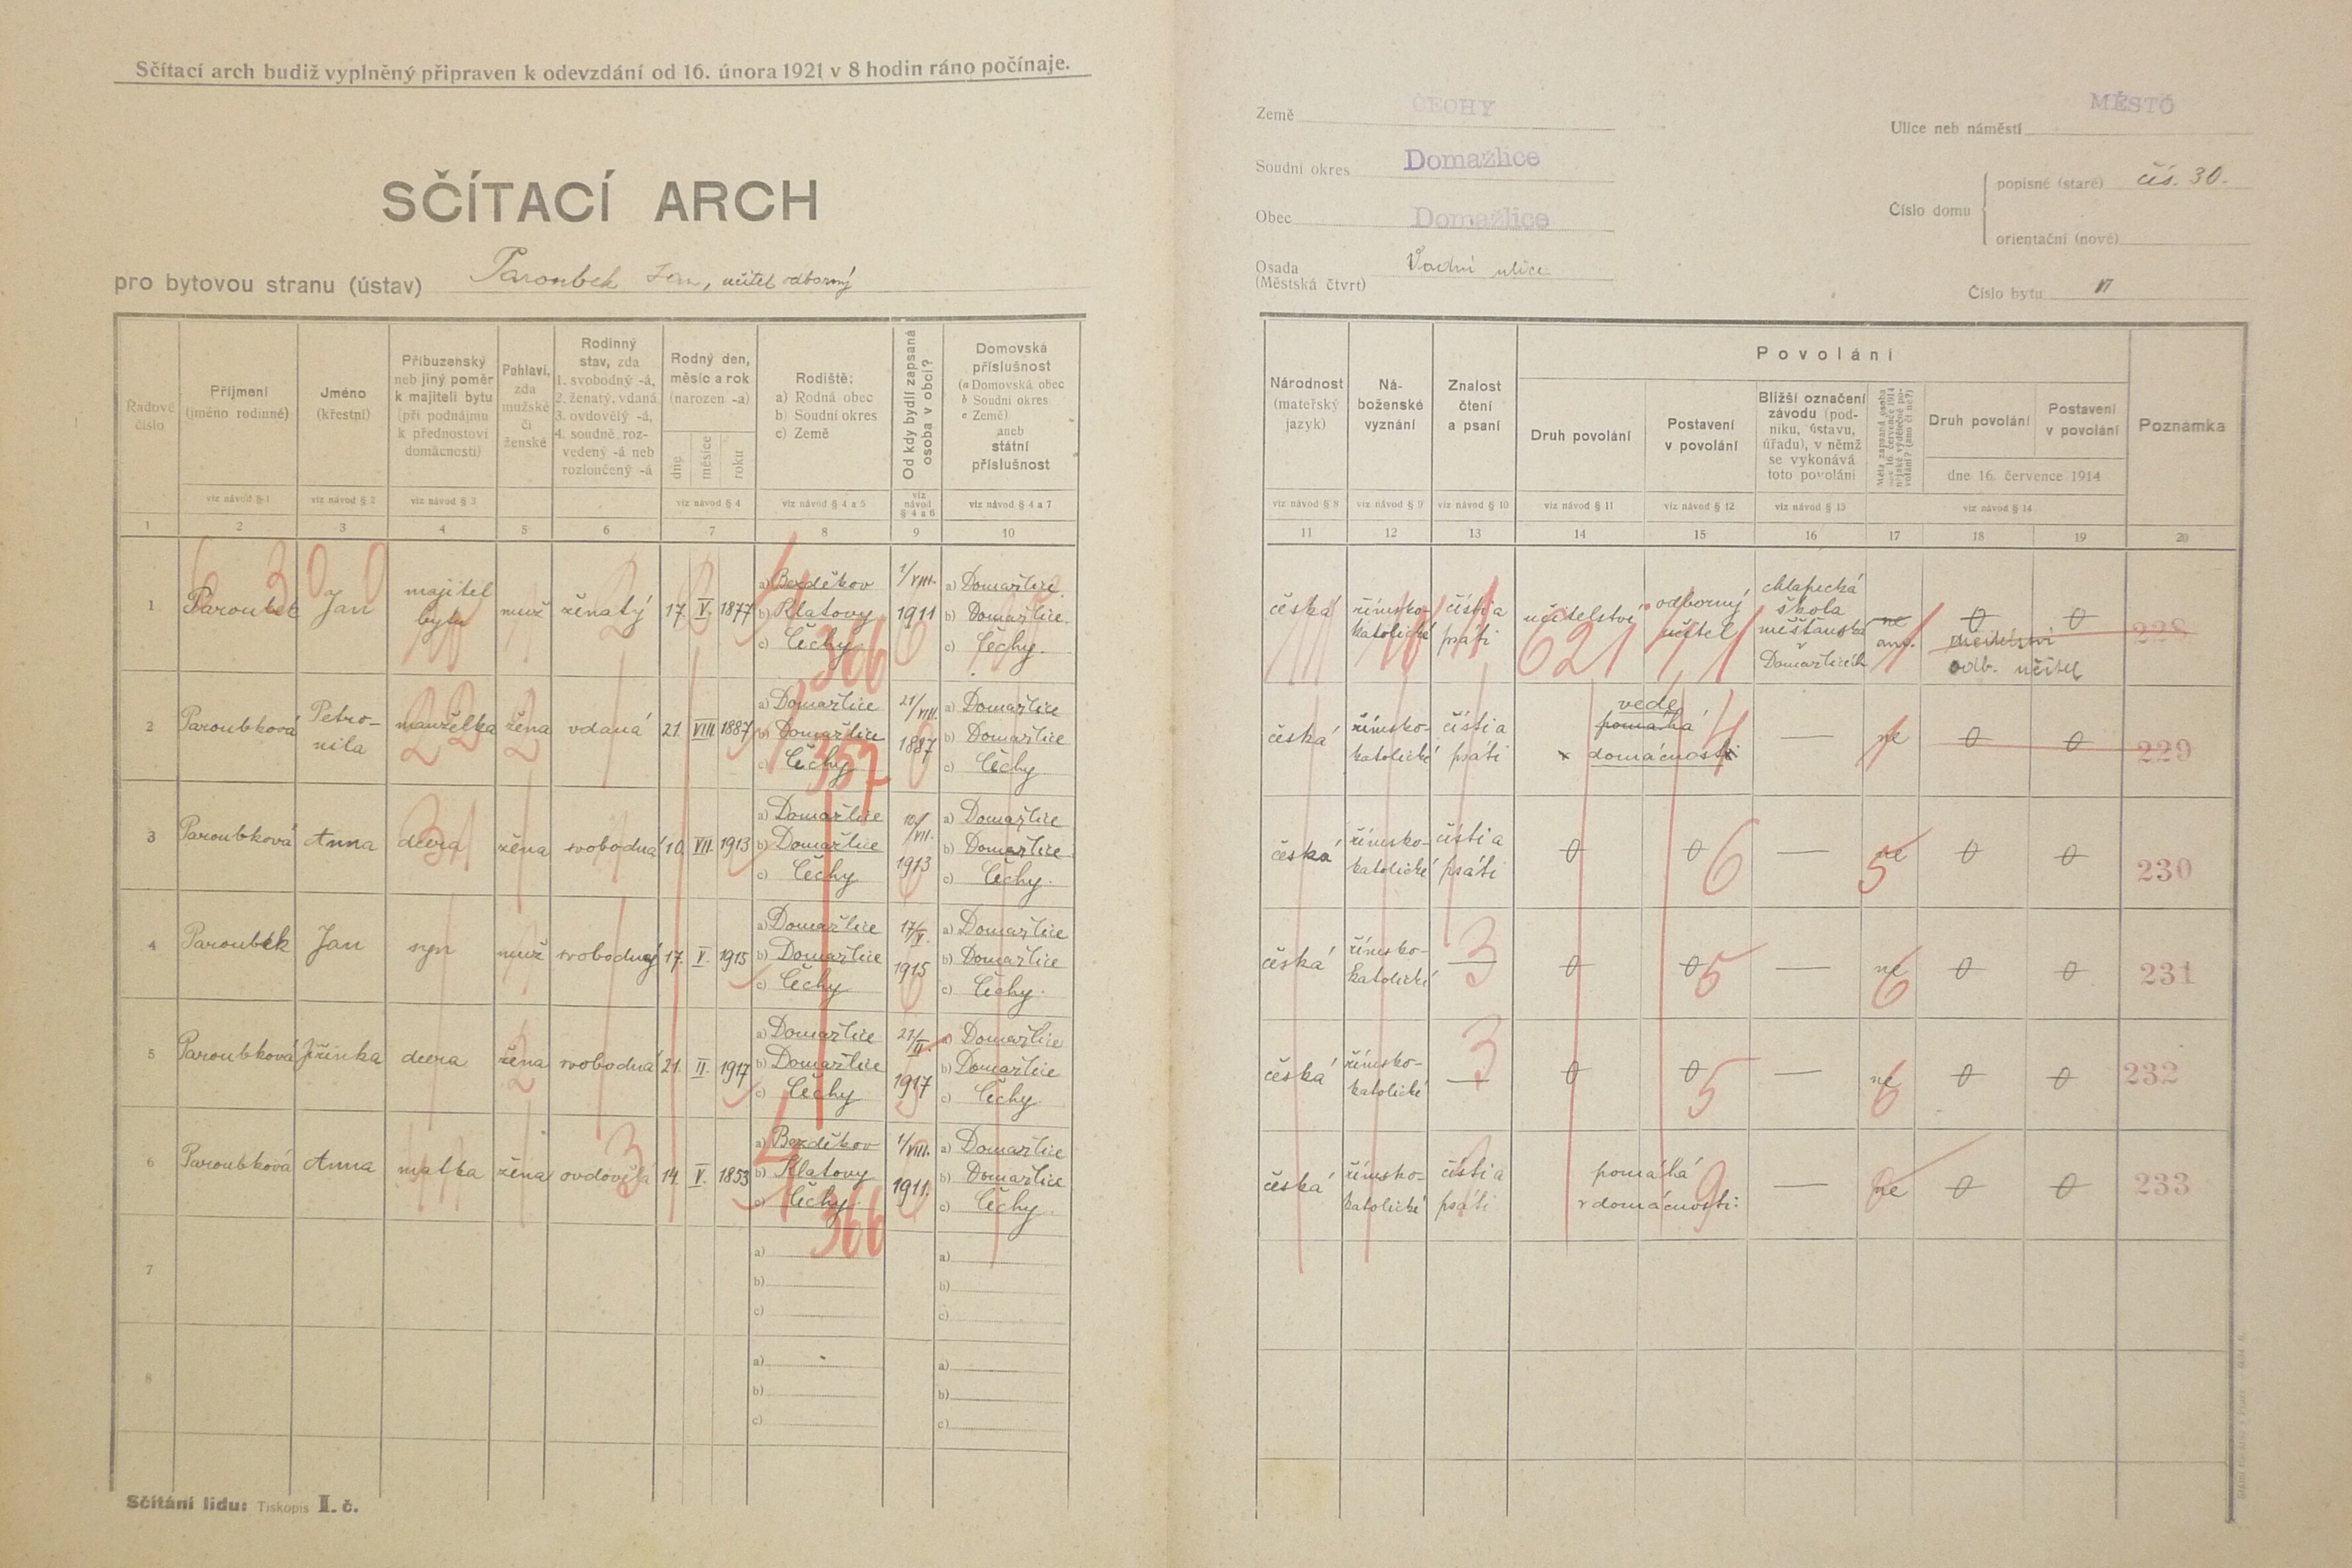 Sčítací arch budiž vyplněný připraven k odevzdání od 16. února 1921 v 8 hodin ráno počínaje.
SČÍTACÍ ARCH
pro bytovou stranu (ústav) Paroubek Jan, učitel odborný
Země ČECHY
Soudní okres Domažlice
Obec Domažlice
Osada
(Městská čtvrť) Vodní ulice
Ulice neb náměstí MĚSTO
Číslo domu
popisné (staré) čís. 30.
orientační (nové)
Číslo bytu
Řadové číslo
Příjmení
(jméno rodinné)
viz návod § 1
Jméno
(křestní)
viz návod § 2
Příbuzenský
neb jiný poměr
k majiteli bytu
(při podnájmu
k přednostovi
domácnosti)
viz návod § 3
Pohlaví,
zda
mužské
či
ženské
Rodinný
stav, zda
1. svobodný -á,
2. ženatý, vdaná
3. ovdovělý -á,
4. soudně roz-
vedený -á neb
rozloučený -á
Rodný den,
měsíc a rok
(narozen -a)
dne
měsíce
roku
viz návod § 4
Rodiště:
a) Rodná obec
b) Soudní okres
c) Země
viz návod § 4 a 5
Od kdy bydlí zapsaná
osoba v obci?
viz
návod
§ 4 a 6
Domovská
příslušnost
(a Domovská obec
b Soudní okres
c Země)
aneb
státní
příslušnost
viz návod § 4 a 7
1 2 3 4 5 6 7 8 9 10
Národnost
(mateřský
jazyk)
viz návod § 8
Ná-
boženské
vyznání
viz návod § 9
Znalost
čtení
a psaní
viz návod § 10
Povolání
Druh povolání
viz návod § 11
Postavení
v povolání
viz návod § 12
Bližší označení
závodu (pod-
niku, ústavu,
úřadu), v němž
se vykonává
toto povolání
viz návod § 13
Měla zapsaná osoba
dne 16. července 1914
nějaké výdělečné po-
volání? (ano či ne?)
Druh povolání
Postavení
v povolání
dne 16. července 1914
viz návod § 14
Poznámka
11 12 13 14 15 16 17 18 19 20
6 3 0 0
1 Paroubek Jan majitel bytu muž ženatý 17. V. 1877
a) Bezděkov 1/VIII. a) Domažlice
b) Klatovy 1911 b) Domažlice
c) Čechy c) Čechy.
366
česká římsko-katolické čísti a psáti učitelství odborný učitel
chlapecká
škola
měšťanská
v
Domažlicích
ne
ano.
0 0
učitelství
odb. učitel
621
228
2 Paroubková Petro-nila manželka žena vdaná 21. VIII. 1887
a) Domažlice 21/VIII. a) Domažlice
b) Domažlice 1887 b) Domažlice
c) Čechy c) Čechy
357
česká římsko-katolické čísti a psáti
vede
pomáhá
v domácnosti
— ne 0 0 229
3 Paroubková Anna dcera žena svobodná 10. VII. 1913
a) Domažlice 10/VII. a) Domažlice
b) Domažlice 1913 b) Domažlice
c) Čechy c) Čechy.
česká římsko-katolické čísti a psáti 0 0 6 — ne 5 0 0 230
4 Paroubek Jan syn muž svobodný 17. V. 1915
a) Domažlice 17/V. a) Domažlice
b) Domažlice 1915 b) Domažlice
c) Čechy c) Čechy.
česká římsko-katolické — 3 0 0 5 — ne 6 0 0 231
5 Paroubková Jiřinka dcera žena svobodná 21. II. 1917
a) Domažlice 21/II. a) Domažlice
b) Domažlice 1917 b) Domažlice
c) Čechy c) Čechy.
česká římsko-katolické — 3 0 0 5 — ne 6 0 0 232
6 Paroubková Anna matka žena ovdovělá 14. V. 1853
a) Bezděkov 1/VIII. a) Domažlice
b) Klatovy 1911. b) Domažlice
c) Čechy c) Čechy.
366
česká římsko-katolické čísti a psáti
pomáhá
v domácnosti
9 — ne 0 0 233
7
a) a)
b) b)
c) c)
8
a) a)
b) b)
c) c)
Sčítání lidu: Tiskopis I. č.